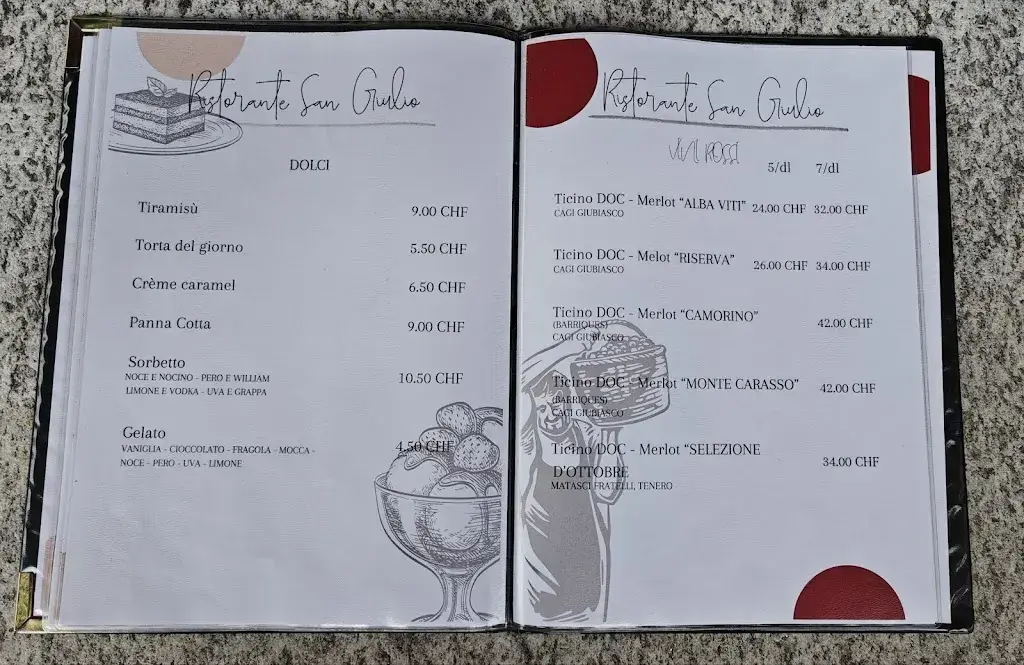 Ristorante San Giulio
DOLCI
Tiramisù 9.00 CHF
Torta del giorno 5.50 CHF
Crème caramel 6.50 CHF
Panna Cotta 9.00 CHF
Sorbetto 10.50 CHF
NOCE E NOCINO - PERO E WILLIAM
LIMONE E VODKA - UVA E GRAPPA
Gelato 4.50 CHF
VANIGLIA - CIOCCOLATO - FRAGOLA - MOCCA -
NOCE - PERO - UVA - LIMONE
Ristorante San Giulio
VINI ROSSI
5/dl 7/dl
Ticino DOC - Merlot “ALBA VITI” 24.00 CHF 32.00 CHF
CAGI GIUBIASCO
Ticino DOC - Melot “RISERVA” 26.00 CHF 34.00 CHF
CAGI GIUBIASCO
Ticino DOC - Merlot “CAMORINO” 42.00 CHF
(BARRIQUES)
CAGI GIUBIASCO
Ticino DOC - Merlot “MONTE CARASSO” 42.00 CHF
(BARRIQUES)
CAGI GIUBIASCO
Ticino DOC - Merlot “SELEZIONE
D'OTTOBRE 34.00 CHF
MATASCI FRATELLI, TENERO